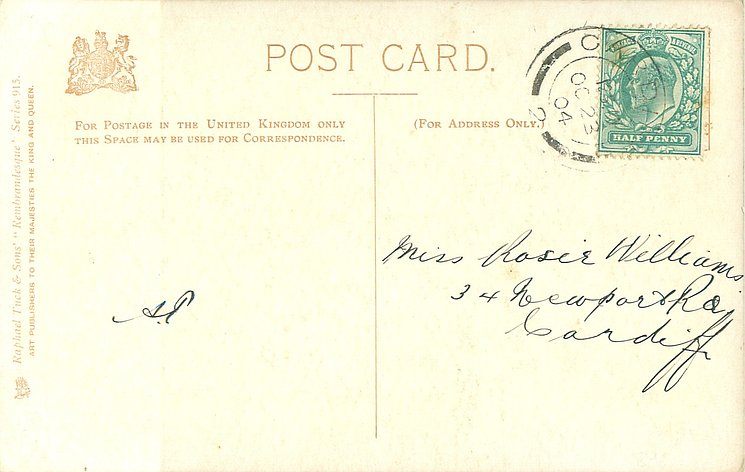 POST CARD.
FOR POSTAGE IN THE UNITED KINGDOM ONLY
THIS SPACE MAY BE USED FOR CORRESPONDENCE.
(FOR ADDRESS ONLY.)
OC 23
04
2
HALF PENNY
Miss Rosie Williams.
34 Newport Rd
Cardiff
Raphael Tuck & Sons' "Rembrandtesque" Series 915.
ART PUBLISHERS TO THEIR MAJESTIES THE KING AND QUEEN.